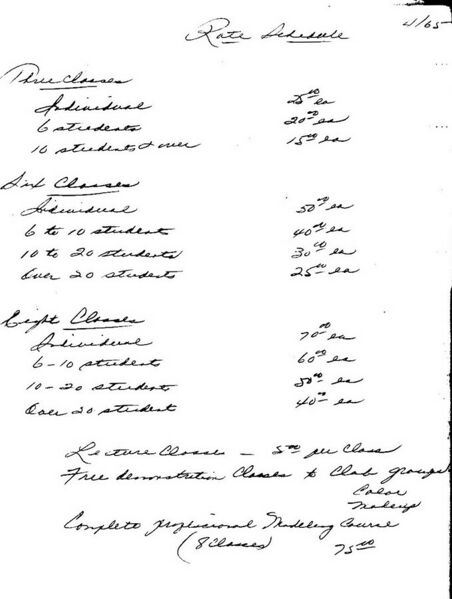 Rate Schedule
4/65
Three Classes
Individual 25.00 ea
6 students 20.00 ea
10 students & over 15.00 ea
Six Classes
Individual 50.00 ea
6 to 10 students 40.00 ea
10 to 20 students 30.00 ea
Over 20 students 25.00 ea
Eight Classes
Individual 70.00 ea
6-10 students 60.00 ea
10-20 students 50.00 ea
Over 20 student 40.00 ea
Lecture Classe - 5.00 per Class
Free demonstration Classes to Club groups
Color
Makeup
Complete professional Modeling Course
(8 Classes) 75.00